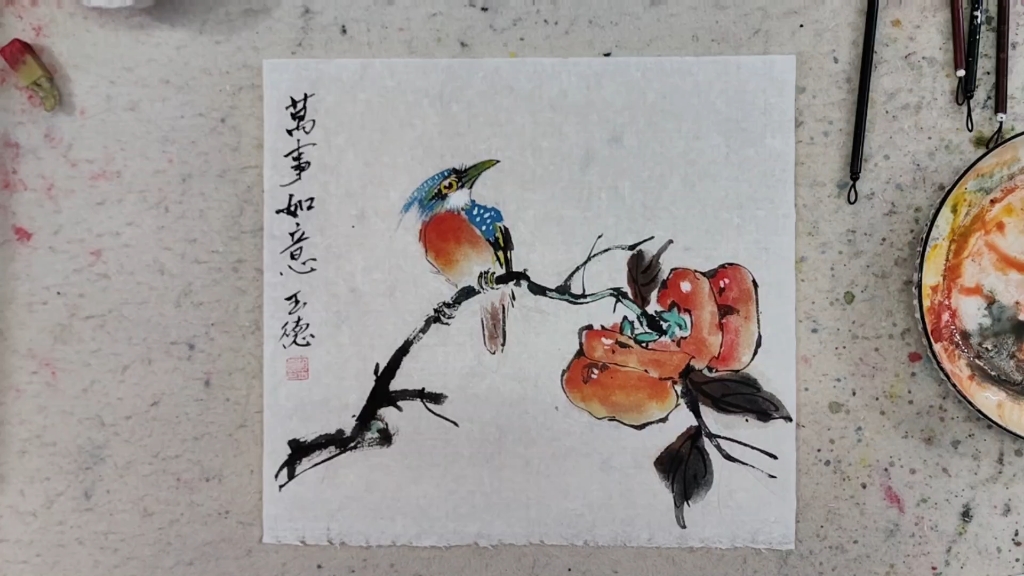 萬事如意 玉德